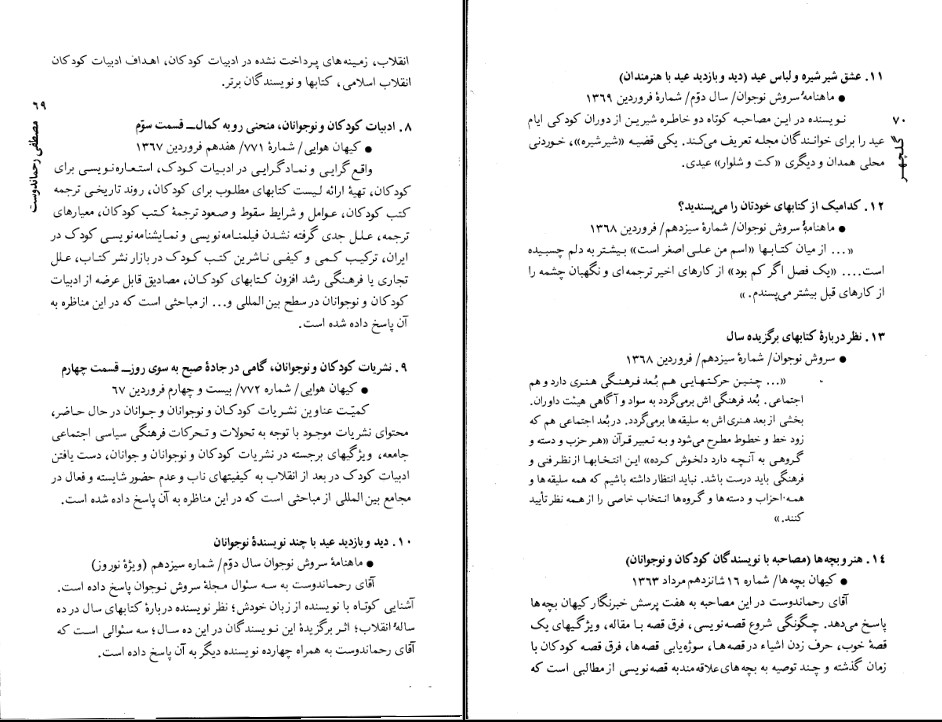 انقلاب، زمینه‌های پرداخت نشده در ادبیات کودکان، اهداف ادبیات کودکان
انقلاب اسلامی، کتابها و نویسندگان برتر.
۶۹
مصطفی رحماندوست
۸. ادبیات کودکان و نوجوانان، منحنی رو به کمال ــ قسمت سوّم
● کیهان هوایی/ شمارهٔ ۷۷۱/ هفدهم فروردین ۱۳۶۷
واقع گرایی و نمادگرایی در ادبیات کودک، استعاره‌نویسی برای
کودکان، تهیهٔ ارائه لیست کتابهای مطلوب برای کودکان، روند تاریخی ترجمه
کتب کودکان، عوامل و شرایط سقوط و صعود ترجمهٔ کتب کودکان، معیارهای
ترجمه، علل جدی گرفته نشدن فیلمنامه‌نویسی و نمایشنامه‌نویسی کودک در
ایران، ترکیب کمی و کیفی ناشرین کتب کودک در بازار نشر کتاب، علل
تجاری یا فرهنگی رشد افزون کتابهای کودکان، مصادیق قابل عرضه از ادبیات
کودکان و نوجوانان در سطح بین المللی و... از مباحثی است که در این مناظره به
آن پاسخ داده شده است.
۹. نشریات کودکان و نوجوانان، گامی در جادهٔ صبح به سوی روز ــ قسمت چهارم
● کیهان هوایی/ شماره ۷۷۲/ بیست و چهارم فروردین ۶۷
کمیّت عناوین نشریات کودکان و نوجوانان و جوانان در حال حاضر،
محتوای نشریات موجود با توجه به تحولات و تحرکات فرهنگی سیاسی اجتماعی
جامعه، ویژگیهای برجسته در نشریات کودکان و نوجوانان و جوانان، دست یافتن
ادبیات کودک در بعد از انقلاب به کیفیتهای ناب و عدم حضور شایسته و فعال در
مجامع بین المللی از مباحثی است که در این مناظره به آن پاسخ داده شده است.
۱۰. دید و بازدید عید با چند نویسندهٔ نوجوانان
● ماهنامهٔ سروش نوجوان سال دوّم/ شماره سیزدهم (ویژهٔ نوروز)
آقای رحماندوست به سه سئوال مجلهٔ سروش نوجوان پاسخ داده است.
آشنایی کوتاه با نویسنده از زبان خودش؛ نظر نویسنده دربارهٔ کتابهای سال در ده
سالهٔ انقلاب؛ اثر برگزیدهٔ این نویسندگان در این ده سال؛ سه سئوالی است که
آقای رحماندوست به همراه چهارده نویسنده دیگر به آن پاسخ داده است.
۷۰
گلچهر
۱۱. عشق شیر شیره و لباس عید (دید و بازدید عید با هنرمندان)
● ماهنامهٔ سروش نوجوان/ سال دوّم/ شمارهٔ فروردین ۱۳۶۹
نویسنده در این مصاحبه کوتاه دو خاطره شیرین از دوران کودکی ایام
عید را برای خوانندگان مجله تعریف می‌کند. یکی قضیه «شیرشیره»، خوردنی
محلی همدان و دیگری «کت و شلوار» عیدی.
۱۲. کدامیک از کتابهای خودتان را می‌پسندید؟
● ماهنامهٔ سروش نوجوان/ شمارهٔ سیزدهم/ فروردین ۱۳۶۸
«... از میان کتابها «اسم من علی اصغر است» بیشتر به دلم چسبیده
است.... «یک فصل اگر کم بود» از کارهای اخیر ترجمه‌ای و نگهبان چشمه را
از کارهای قبل بیشتر می‌پسندم.»
۱۳. نظر دربارهٔ کتابهای برگزیده سال
● سروش نوجوان/ شمارهٔ سیزدهم/ فروردین ۱۳۶۸
«... چنین حرکتهایی هم بُعد فرهنگی هنری دارد و هم
اجتماعی. بُعد فرهنگی اش برمی‌گردد به سواد و آگاهی هیئت داوران.
بخشی از بعد هنری اش به سلیقه‌ها برمی‌گردد. در بُعد اجتماعی هم که
زود خط و خطوط مطرح می‌شود و به تعبیر قرآن «هر حزب و دسته و
گروهی به آنچه دارد دلخوش کرده» این انتخابها از نظر فنی و
فرهنگی باید درست باشد. نباید انتظار داشته باشیم که همه سلیقه‌ها و
همه احزاب و دسته‌ها و گروه‌ها انتخاب خاصی را از همه نظر تأیید
کنند.»
۱۴. هنر و بچه‌ها (مصاحبه با نویسندگان کودکان و نوجوانان)
● کیهان بچه‌ها/ شماره ۱۶ شانزدهم مرداد ۱۳۶۳
آقای رحماندوست در این مصاحبه به هفت پرسش خبرنگار کیهان بچه‌ها
پاسخ می‌دهد. چگونگی شروع قصه‌نویسی، فرق قصه با مقاله، ویژگیهای یک
قصهٔ خوب، حرف زدن اشیاء در قصه‌ها، سوژه‌یابی قصه‌ها، فرق قصه کودکان با
زمان گذشته و چند توصیه به بچه‌های علاقه‌مند به قصه‌نویسی از مطالبی است که